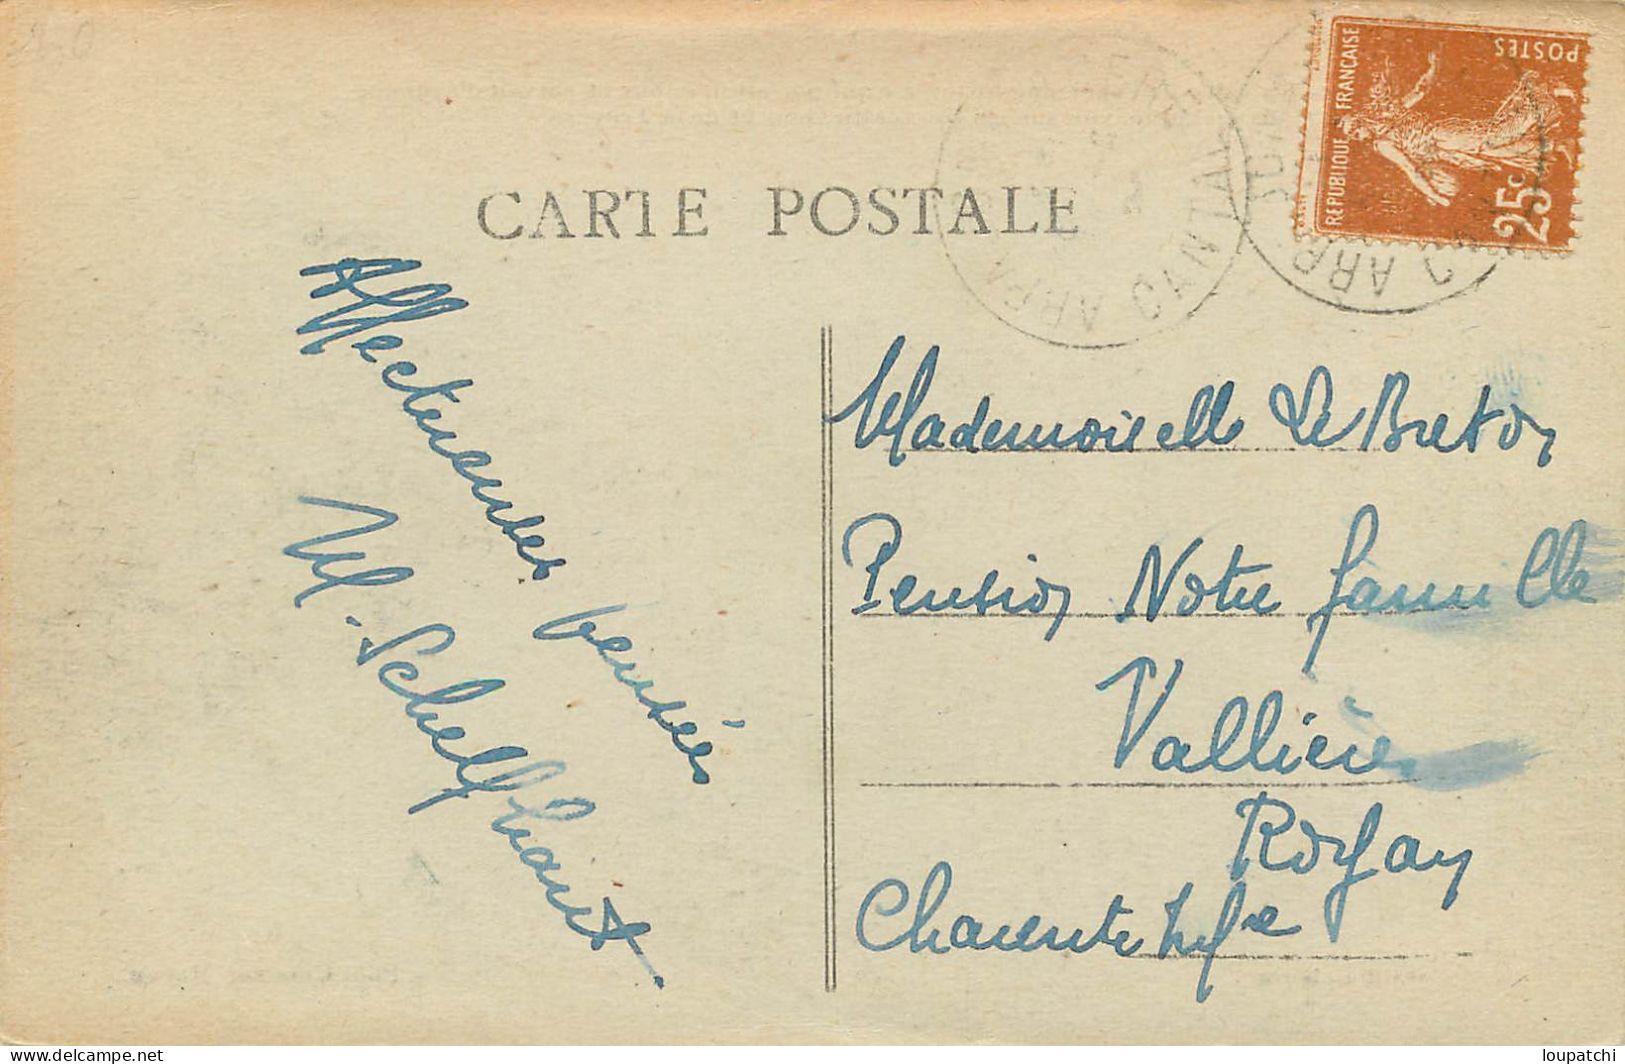 CARTE POSTALE
RÉPUBLIQUE FRANÇAISE
POSTES
25c
Affectueuses pensées
Mademoiselle Le Breton
Pension Notre famille
Vallière
Royan
Charente Infre
delcampe.net
loupatchi